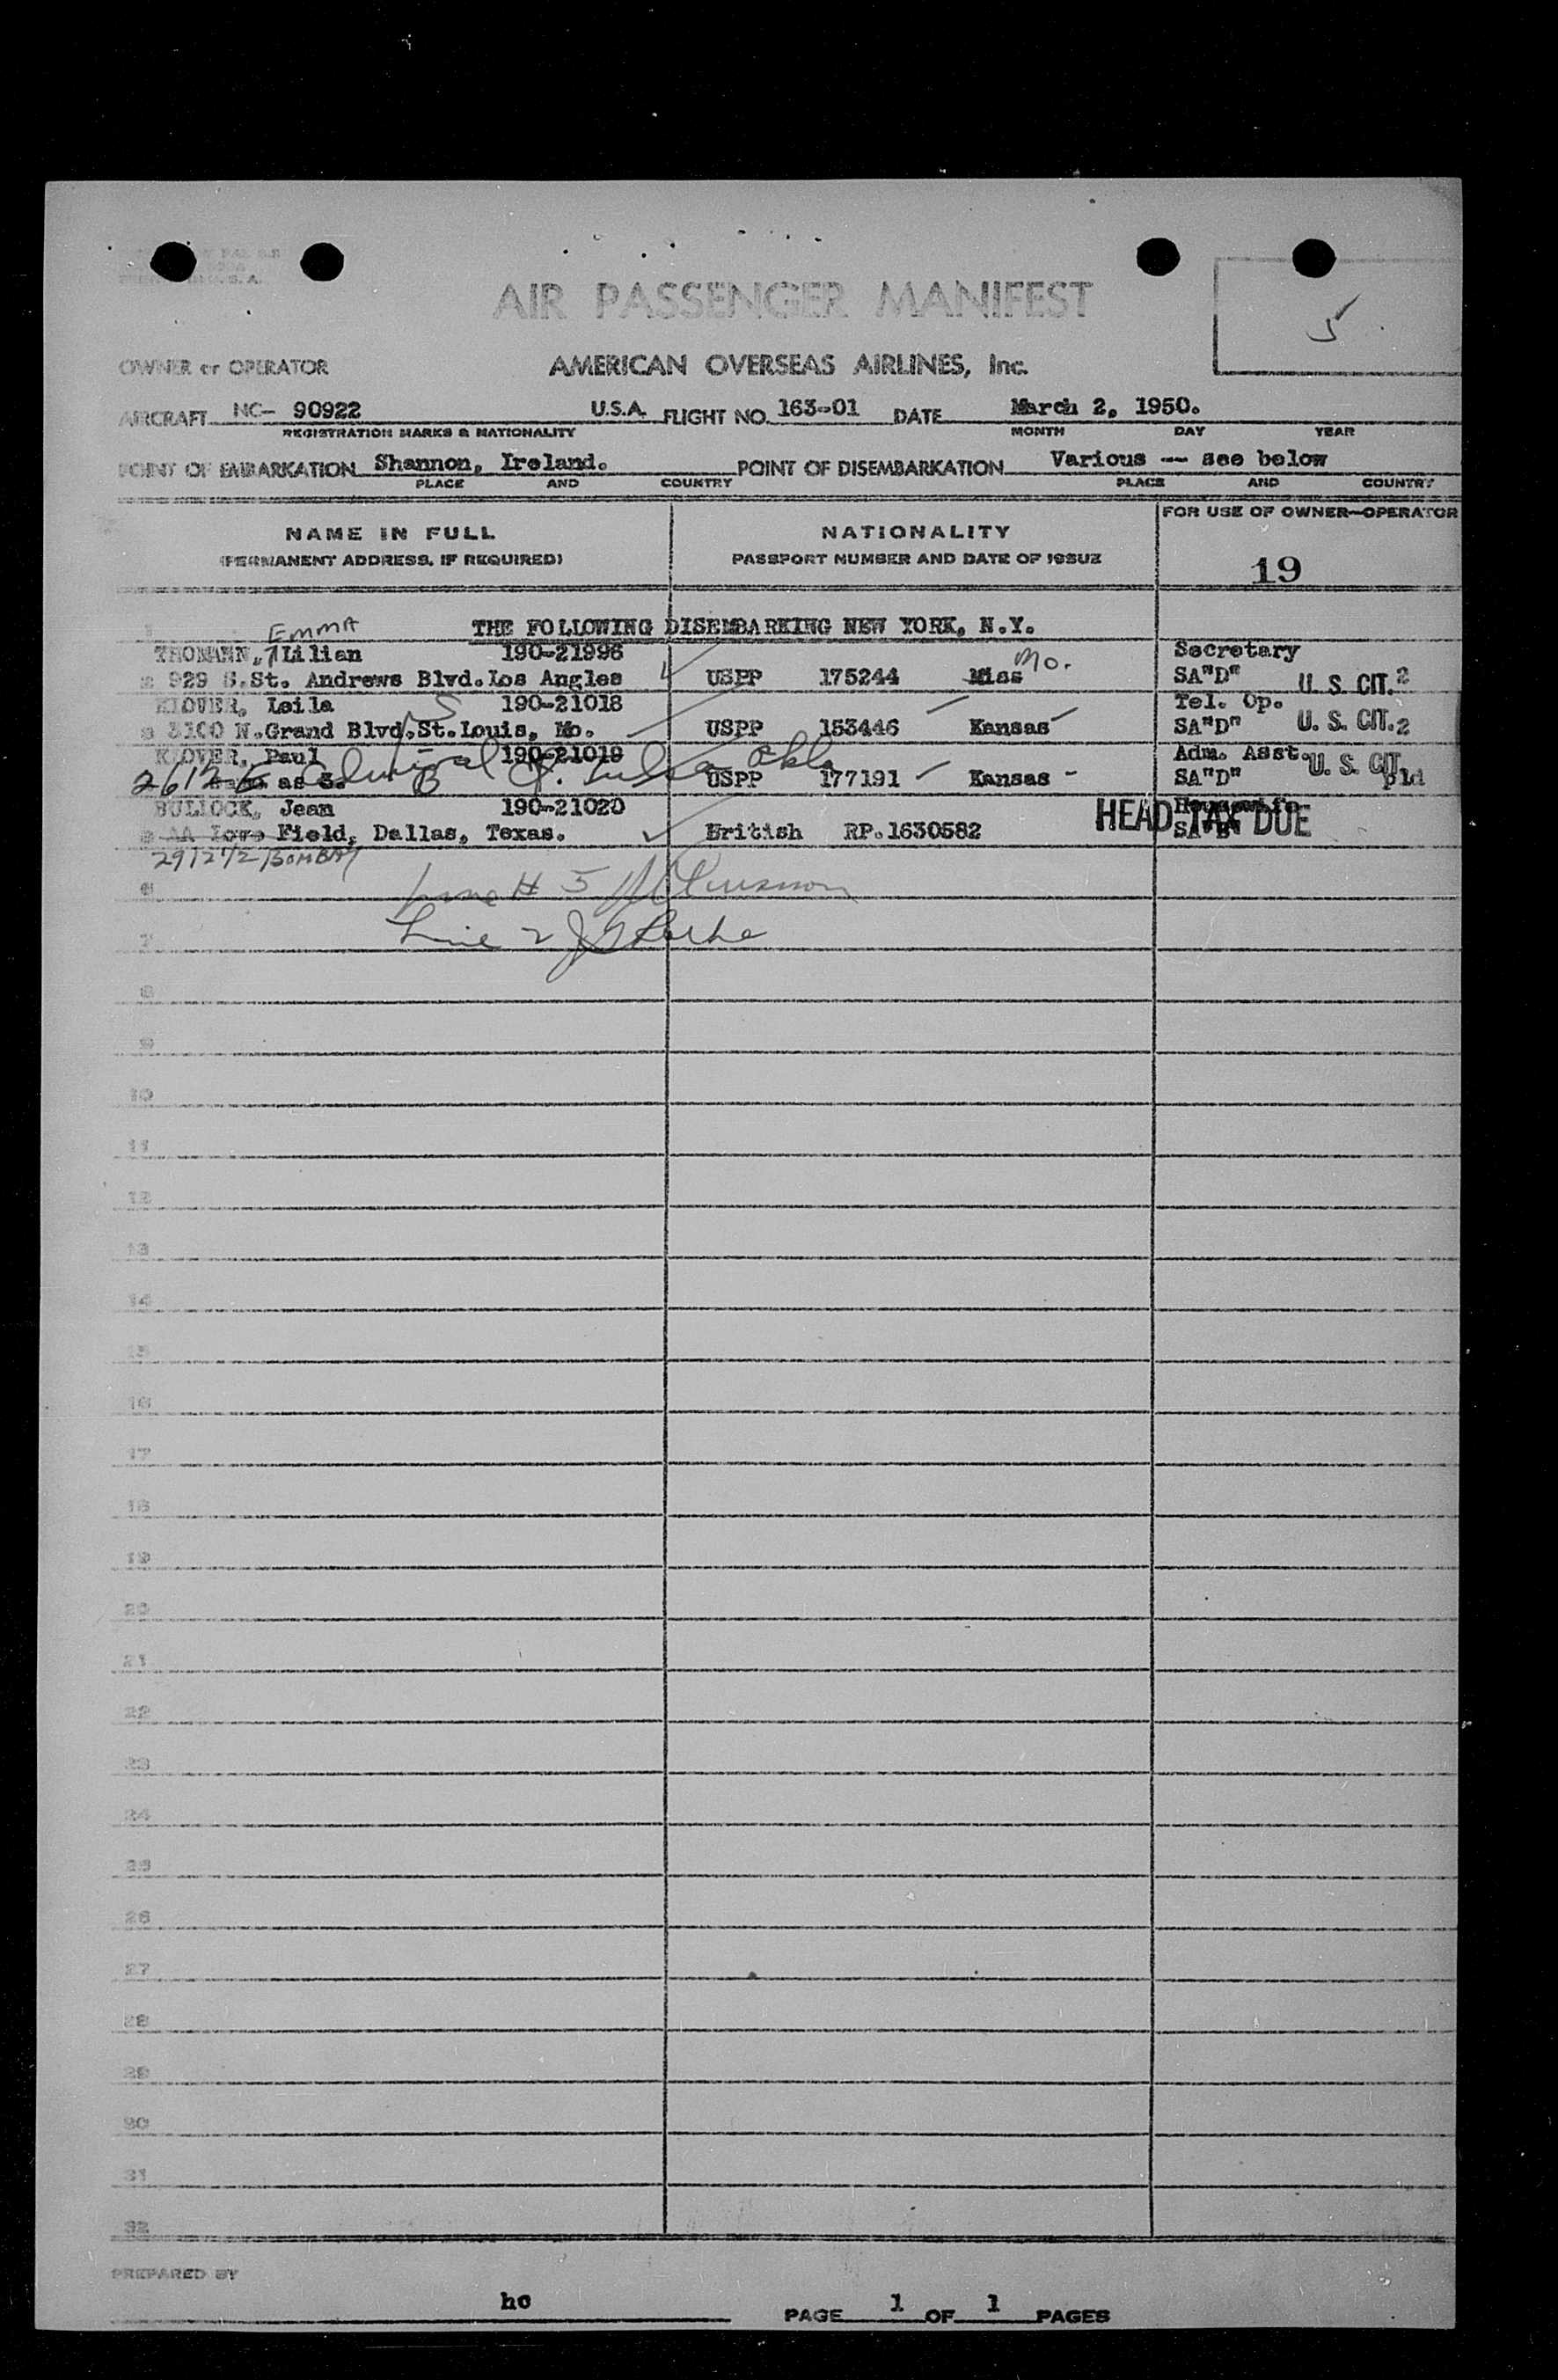 AIR PASSENGER MANIFEST
5
OWNER or OPERATOR AMERICAN OVERSEAS AIRLINES, Inc.
AIRCRAFT NC- 90922 U.S.A. FLIGHT NO. 163-01 DATE March 2, 1950.
REGISTRATION MARKS & NATIONALITY MONTH DAY YEAR
POINT OF EMBARKATION Shannon, Ireland. POINT OF DISEMBARKATION Various -- see below
PLACE AND COUNTRY PLACE AND COUNTRY
NAME IN FULL NATIONALITY FOR USE OF OWNER-OPERATOR
(PERMANENT ADDRESS, IF REQUIRED) PASSPORT NUMBER AND DATE OF ISSUE 19
1 THE FOLLOWING DISEMBARKING NEW YORK, N.Y.
EMMA
THOMANN, Lilian 190-21996 Secretary
2 929 S.St. Andrews Blvd.Los Angles USPP 175244 Miss Mo. SA"D" U. S. CIT. 2
KLOVER, Leila 190-21018 Tel. Op.
3 3100 N.Grand Blvd.St.Louis, Mo. S USPP 153446 Kansas SA"D" U. S. CIT. 2
KLOVER, Paul 190-21019 Adm. Asst. U. S. CIT.
2612 E Admiral Tulsa Okla
as 3. USPP 177191 Kansas SA"D" pld
BULLOCK, Jean 190-21020 Housewife
AA Love Field, Dallas, Texas. British RP.1630582 SA"B" HEAD TAX DUE
2912 1/2 BOMBAY
6 Line # 5
7 Line 2
8
9
10
11
12
13
14
15
16
17
18
19
20
21
22
23
24
25
26
27
28
29
30
31
32
PREPARED BY
hc PAGE 1 OF 1 PAGES